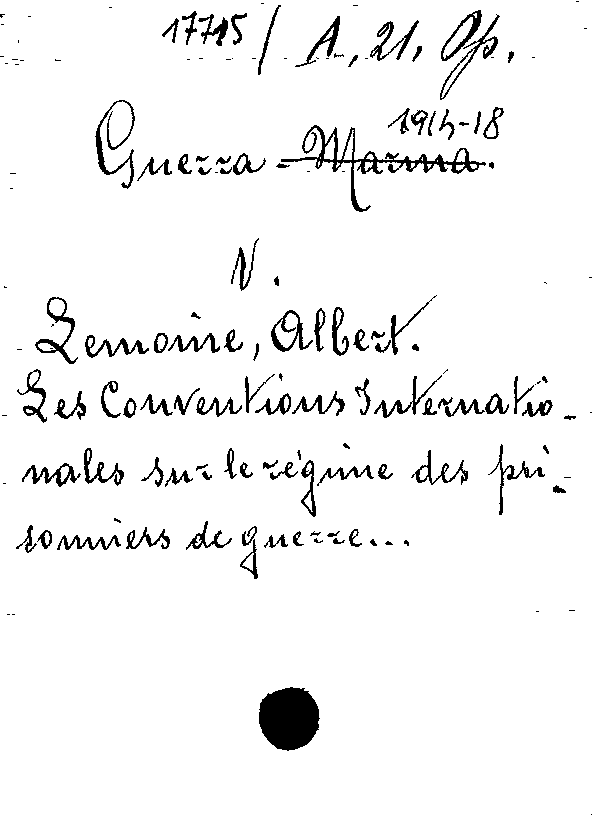 17715 / A, 21, Op.
1914-18
Guerra - Marina.
V.
Lemoine, Albert.
Les Conventions Internatio-
nales sur le régime des pri-
sonniers de guerre...